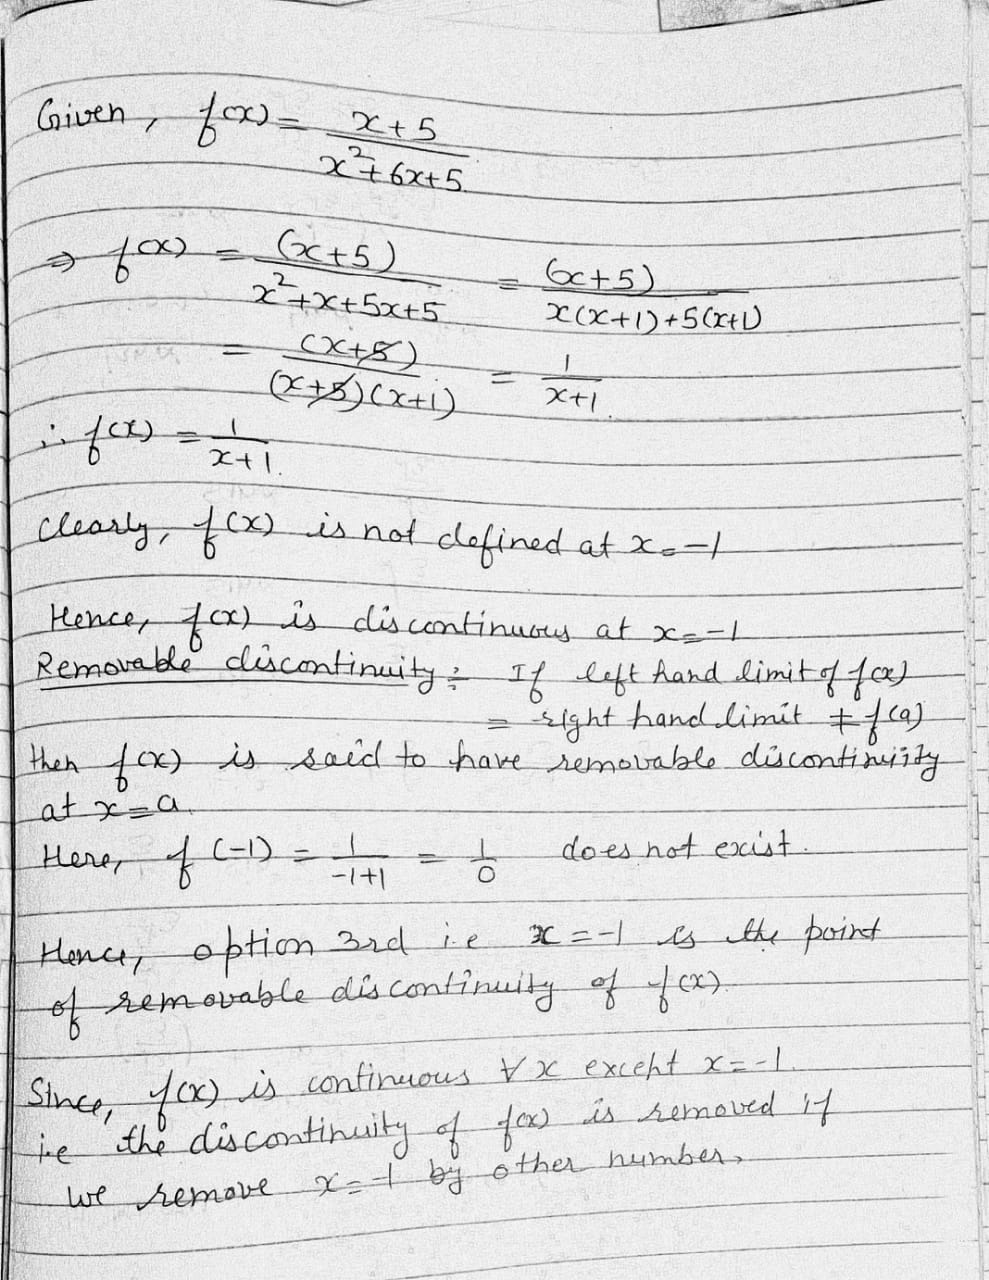 Given, f(x) = x+5 / x²+6x+5.
⇒ f(x) = (x+5) / x²+x+5x+5 = (x+5) / x(x+1)+5(x+1)
= (x+5) / (x+5)(x+1) = 1 / x+1.
∴ f(x) = 1 / x+1.
Clearly, f(x) is not defined at x=-1
Hence, f(x) is discontinuous at x=-1
Removable discontinuity:- If left hand limit of f(x)
= right hand limit ≠ f(a)
then f(x) is said to have removable discontinuity
at x=a.
Here, f(-1) = 1 / -1+1 = 1 / 0 does not exist.
Hence, option 3rd i.e x=-1 is the point
of removable discontinuity of f(x).
Since, f(x) is continuous ∀ x except x=-1.
i.e the discontinuity of f(x) is removed if
we remove x=-1 by other number.